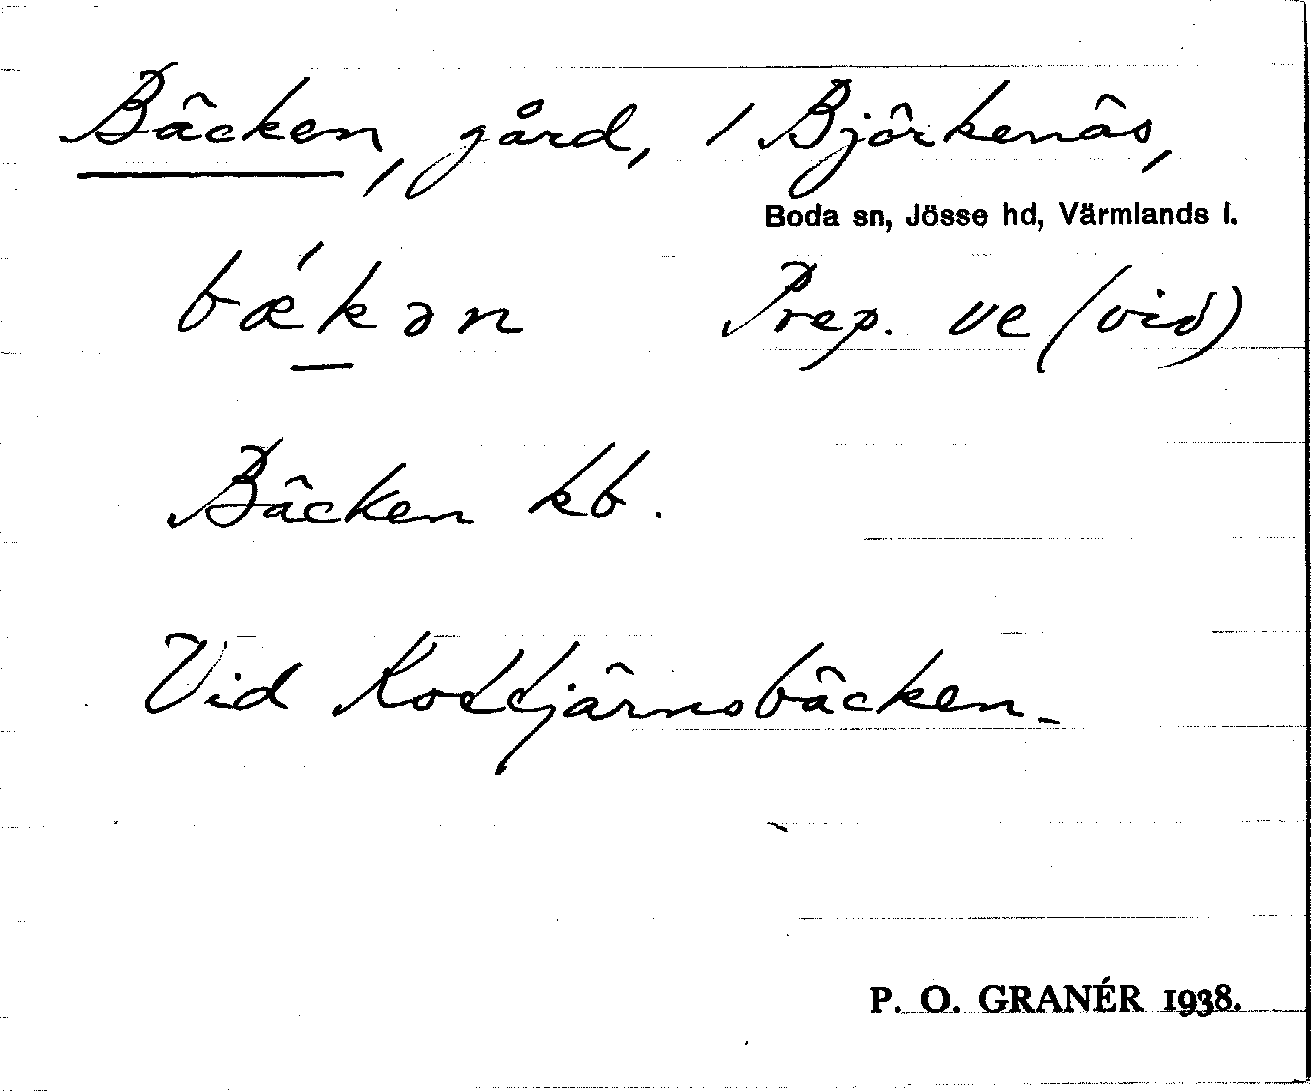 Bäcken, gård, / Björkenäs,
Boda sn, Jösse hd, Värmlands l.
bǽkən Prep. ve (vid)
Bäcken kb.
Vid Kottjärnsbäcken.
P. O. GRANÉR 1938.